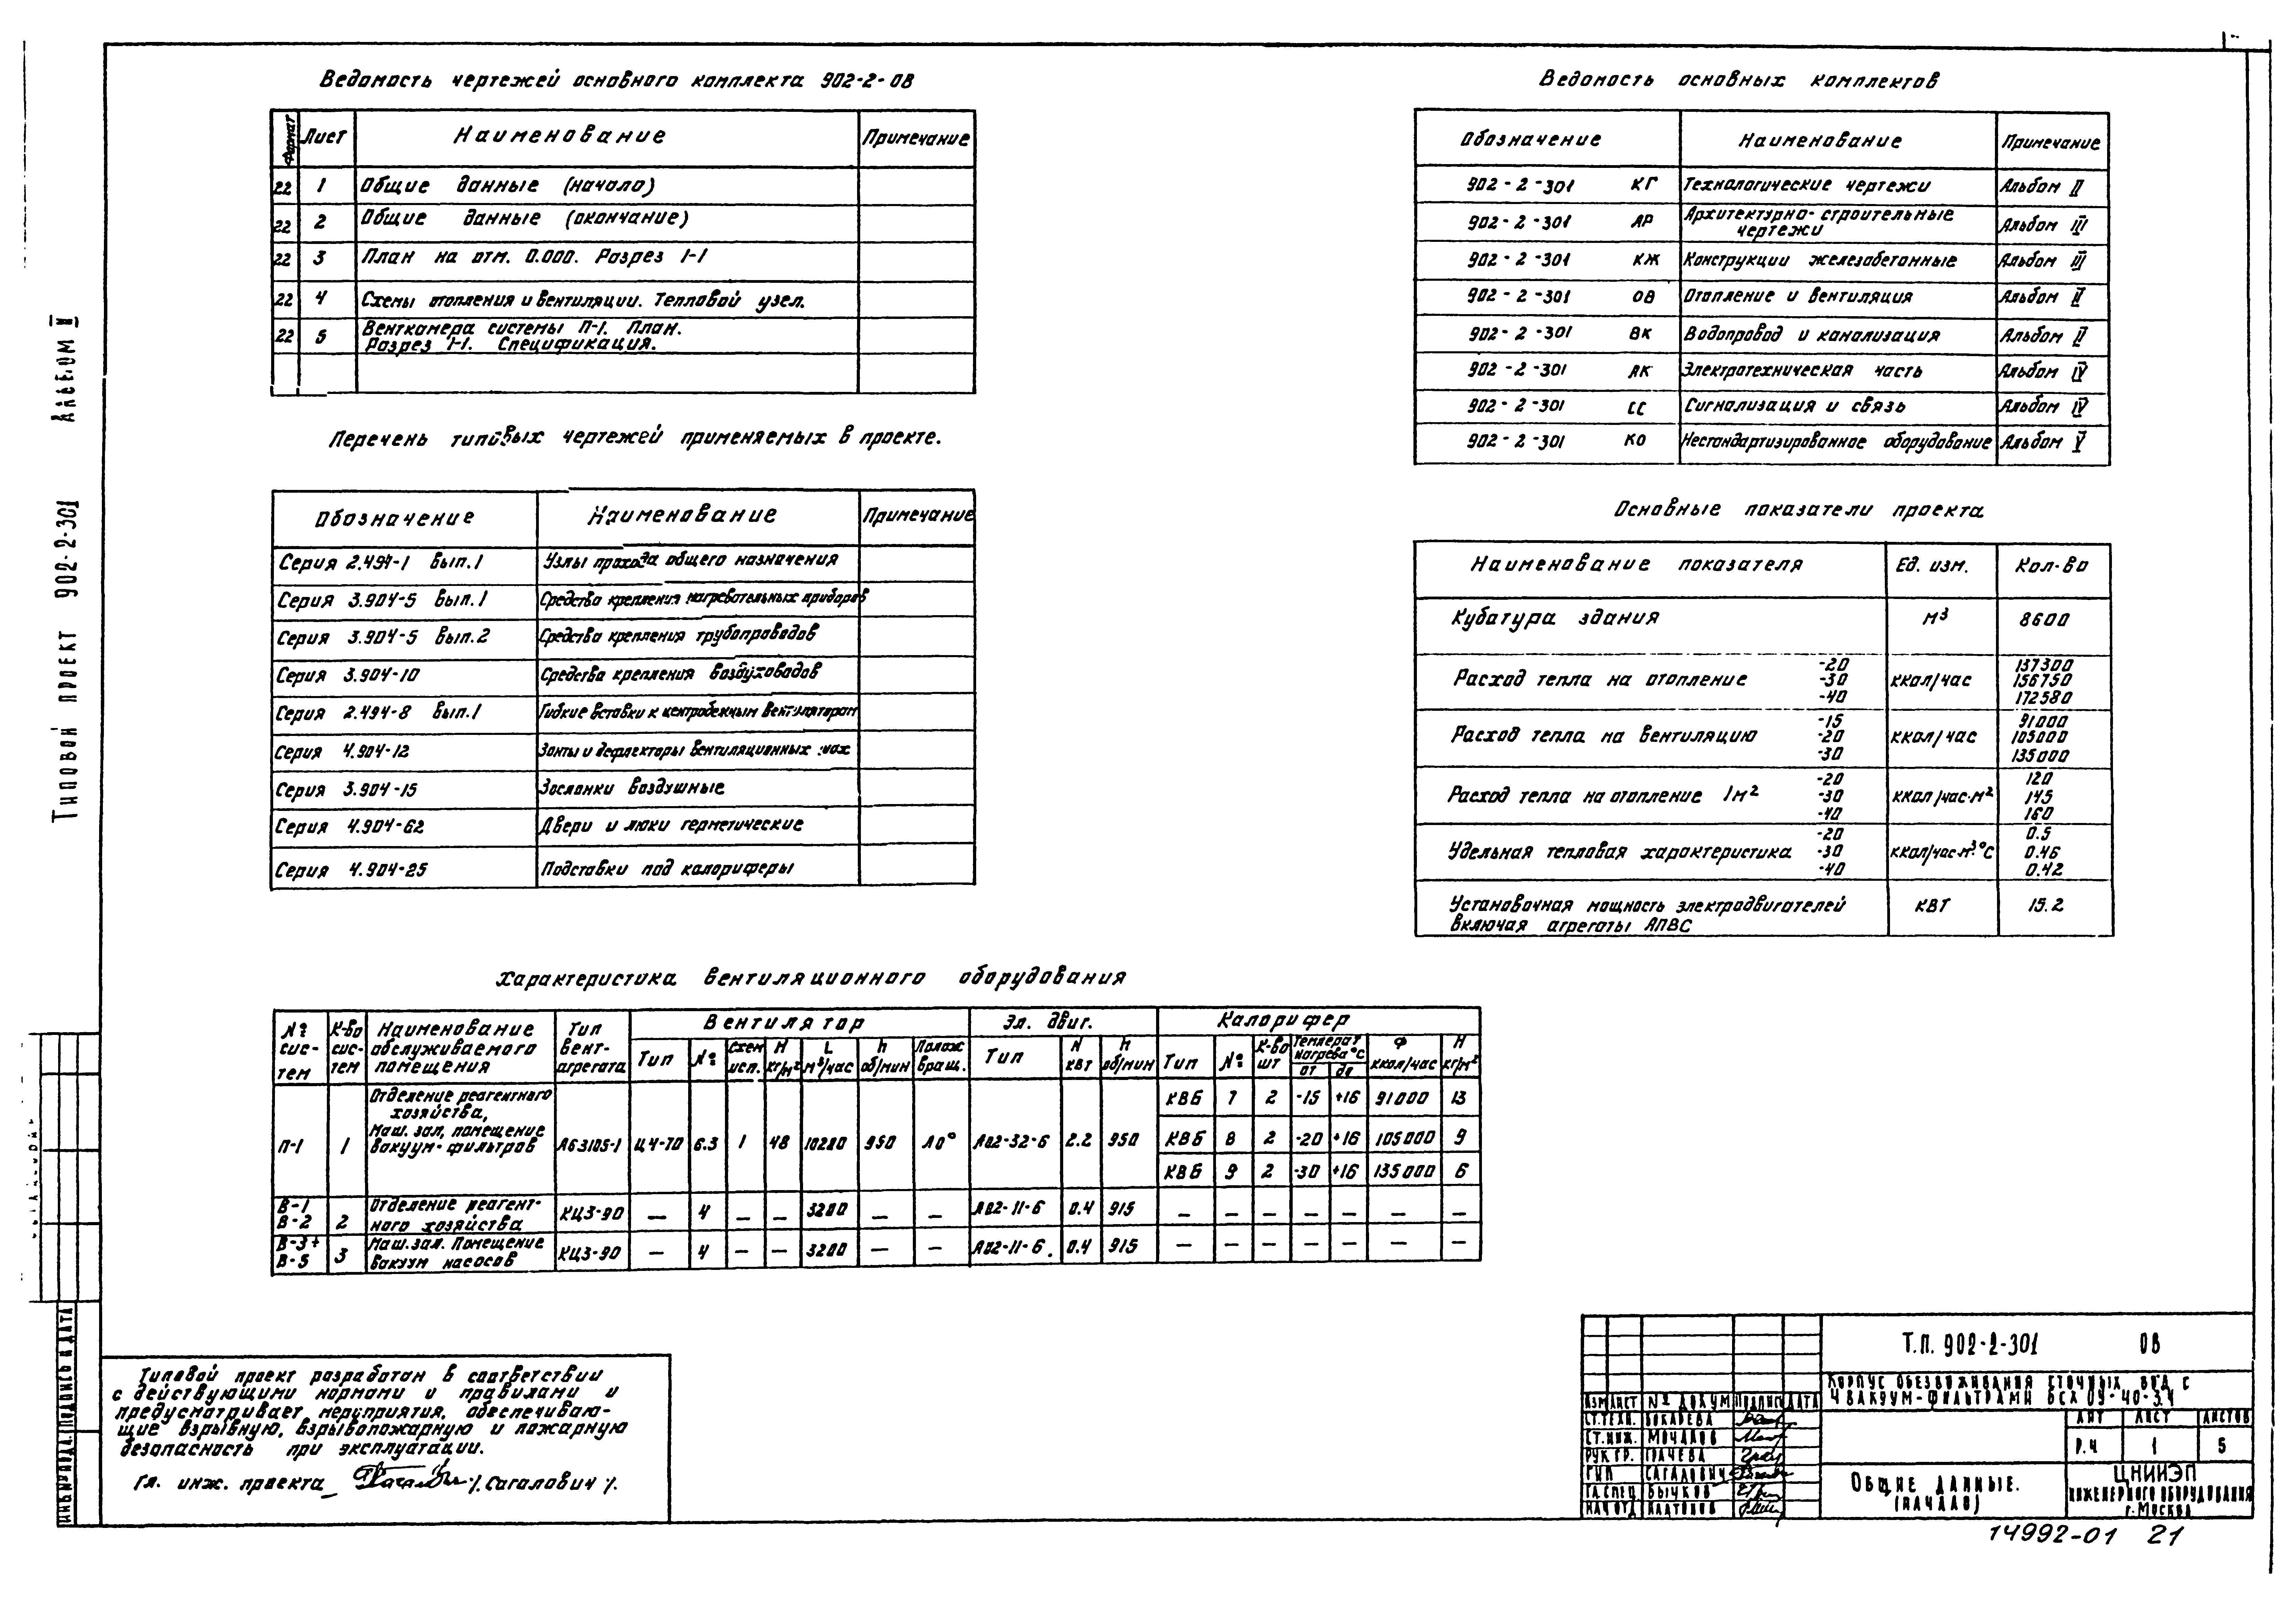 Ведомость чертежей основного комплекта 902-2-ОВ
Формат Лист Наименование Примечание
22 1 Общие данные (начало)
22 2 Общие данные (окончание)
22 3 План на отм. 0.000. Разрез 1-1
22 4 Схемы отопления и вентиляции. Тепловой узел.
22 5 Венткамера системы П-1. План.
Разрез 1-1. Спецификация.
Перечень типовых чертежей применяемых в проекте.
Обозначение Наименование Примечание
Серия 2.494-1 Вып.1 Узлы прохода общего назначения
Серия 3.904-5 Вып.1 Средства крепления нагревательных приборов
Серия 3.904-5 Вып.2 Средства крепления трубопроводов
Серия 3.904-10 Средства крепления воздуховодов
Серия 2.494-8 Вып.1 Гибкие вставки к центробежным вентиляторам
Серия 4.904-12 Зонты и дефлекторы вентиляционных шах
Серия 3.904-15 Заслонки воздушные
Серия 4.904-62 Двери и люки герметические
Серия 4.904-25 Подставки под калориферы
Ведомость основных комплектов
Обозначение Наименование Примечание
902-2-301 КГ Технологические чертежи Альбом II
902-2-301 АР Архитектурно-строительные
чертежи Альбом III
902-2-301 КЖ Конструкции железобетонные Альбом III
902-2-301 ОВ Отопление и вентиляция Альбом II
902-2-301 ВК Водопровод и канализация Альбом II
902-2-301 АК Электротехническая часть Альбом IV
902-2-301 СС Сигнализация и связь Альбом IV
902-2-301 КО Нестандартизированное оборудование Альбом V
Основные показатели проекта
Наименование показателя Ед. изм. Кол-во
Кубатура здания м³ 8600
-20 137300
Расход тепла на отопление -30 ккал/час 156750
-40 172580
-15 91000
Расход тепла на вентиляцию -20 ккал/час 105000
-30 135000
-20 120
Расход тепла на отопление 1м² -30 ккал/час·м² 145
-40 160
-20 0.5
Удельная тепловая характеристика -30 ккал/час·м³·°С 0.46
-40 0.42
Установочная мощность электродвигателей КВТ 15.2
включая агрегаты АПВС
Характеристика вентиляционного оборудования
№ сис-тем К-во сис-тем Наименование обслуживаемого помещения Тип вент-агрегата Вентилятор Эл. двиг. Калорифер
Тип № Схем исп. Н кг/м² L м³/час n об/мин Полож вращ. Тип N квт n об/мин Тип № К-во шт Температ нагрева °С от до Ф ккал/час Н кг/м²
П-1 1 Отделение реагентного
хозяйства,
Маш. зал, помещение
вакуум-фильтров А63105-1 Ц4-70 6.3 1 48 10280 950 Л0° А02-32-6 2.2 950
КВБ 7 2 -15 +16 91000 13
КВБ 8 2 -20 +16 105000 9
КВБ 9 2 -30 +16 135000 6
В-1
В-2 2 Отделение реагент-
ного хозяйства КЦ3-90 — 4 — — 3200 — — А02-11-6 0.4 915 — — — — — — —
В-3÷
В-5 3 Маш. зал. Помещение
вакуум насосов КЦ3-90 — 4 — — 3200 — — А02-11-6. 0.4 915 — — — — — — —
Типовой проект разработан в соответствии
с действующими нормами и правилами и
предусматривает мероприятия, обеспечиваю-
щие взрывную, взрывопожарную и пожарную
безопасность при эксплуатации.
Гл. инж. проекта /. Сагалович /.
Типовой проект 902-2-301 Альбом II
ИНВ № ПОДЛ. ПОДПИСЬ И ДАТА
Т.П. 902-2-301 ОВ
КОРПУС ОБЕЗВОЖИВАНИЯ СТОЧНЫХ ВОД С
4 ВАКУУМ-ФИЛЬТРАМИ БСХ ОУ-40-3.4
ИЗМ ЛИСТ № ДОКУМ ПОДПИСЬ ДАТА
СТ.ТЕХН. БОКАРЕВА
СТ.ИНЖ. МОЧАЛОВ
РУК ГР. ГРАЧЕВА
ГИП САГАЛОВИЧ
ГЛ.СПЕЦ БЫЧКОВ
НАЧ ОТД ПЛАТОНОВ
ЛИТ ЛИСТ ЛИСТОВ
Р.Ч 1 5
ОБЩИЕ ДАННЫЕ.
(НАЧАЛО)
ЦНИИЭП
ИНЖЕНЕРНОГО ОБОРУДОВАНИЯ
г. МОСКВА
14992-01 21